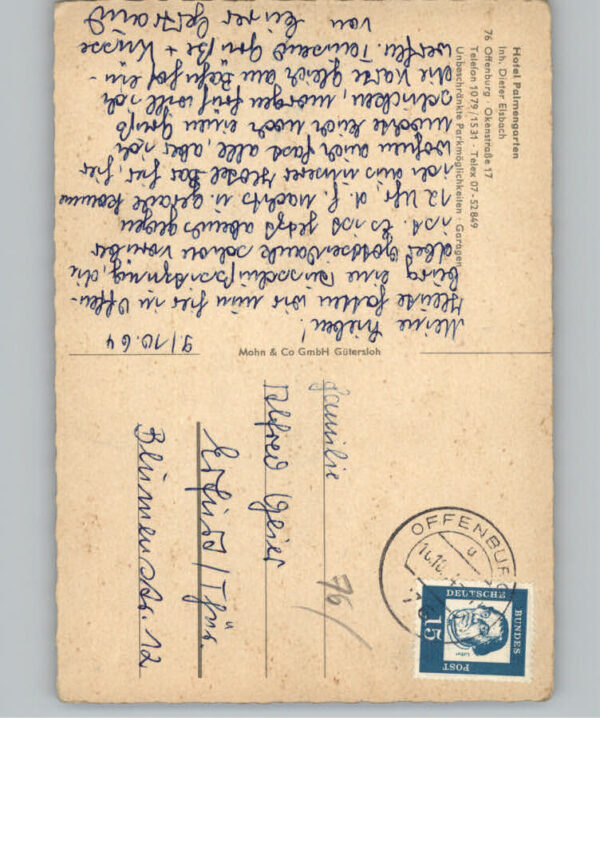 Hotel Palmengarten
Inh. Dieter Elsbach
76 Offenburg · Okenstraße 17
Telefon 10 79 / 15 31 · Telex 07-52 849
Unbeschränkte Parkmöglichkeiten · Garagen
9/10.64
Meine Lieben!
Heute hatten wir nun hier in Offen-
burg eine Ausschußsitzung, die
aber Gottseidank schon vorüber
ist. Es ist jetzt abends gegen
12 Uhr, d. h. nachts u. gerade komme
ich aus unserer Hotel-Bar, hier, hier
wohnen auch fast alle, aber ich
möchte Euch noch einen Gruß
schicken, morgen früh will ich
die Karte gleich am Bahnhof ein-
werfen. Tausend Grüße + Küsse
von Eurer Gertraud
Mohn & Co GmbH Gütersloh
Familie
Alfred Geier
Erfurt / Thür.
Blumenstr. 12
76/
OFFENBURG
DEUTSCHE
BUNDES
POST
15
Luther